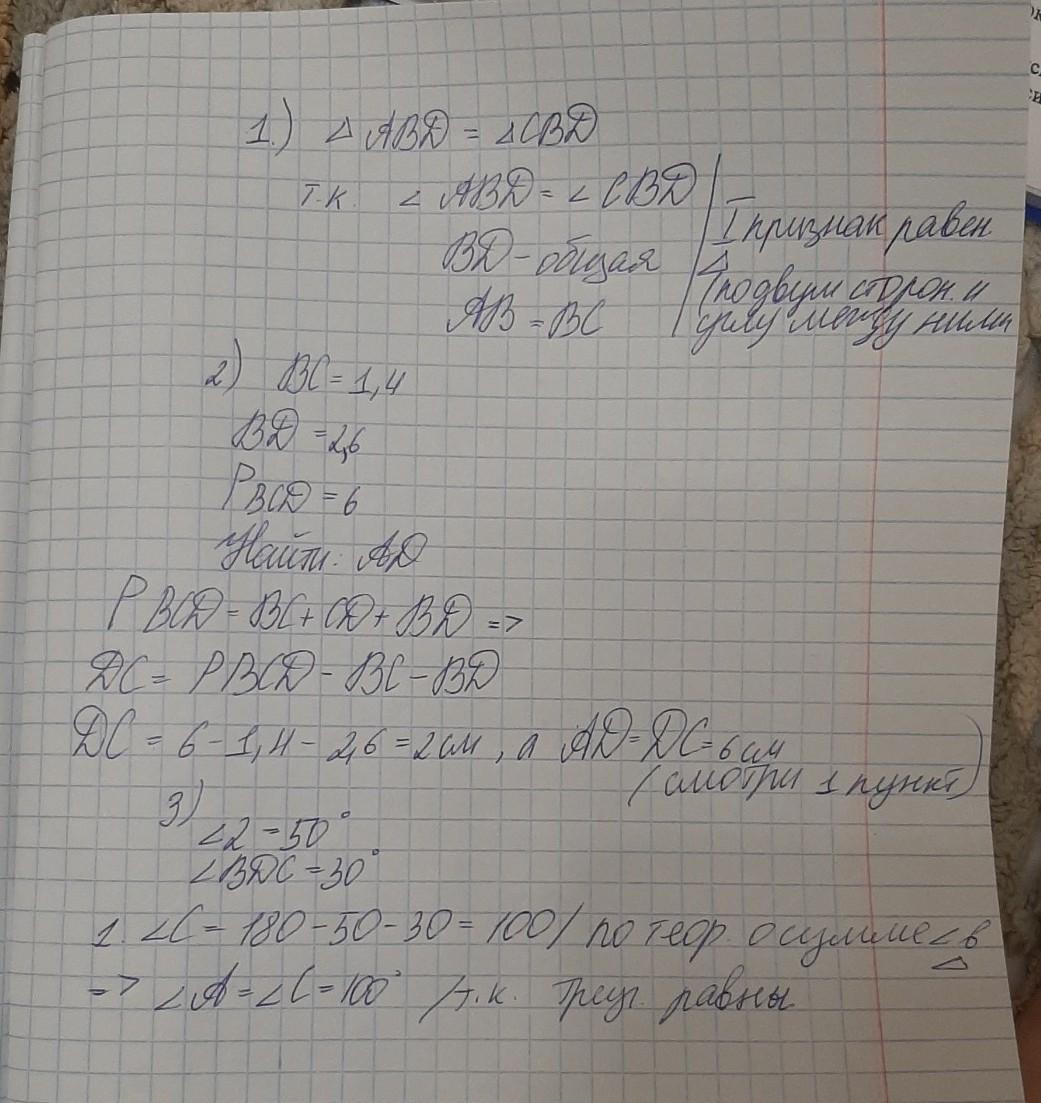 1.) △ ABD = △CBD
т.к. ∠ ABD = ∠ CBD
BD - общая
AB = BC
I признак равен
△
/по двум сторон. и
углу между ними
2) BC = 1,4
BD = 2,6
PBCD = 6
Найти: AD
P BCD = BC + CD + BD =>
DC = PBCD - BC - BD
DC = 6 - 1,4 - 2,6 = 2 см, а AD = DC = 6 см
(смотри 1 пункт)
3)
∠2 = 50°
∠BDC = 30°
1. ∠C = 180 - 50 - 30 = 100 / по теор. о сумме ∠ в
△
=> ∠A = ∠C = 100° /т.к. треуг. равны